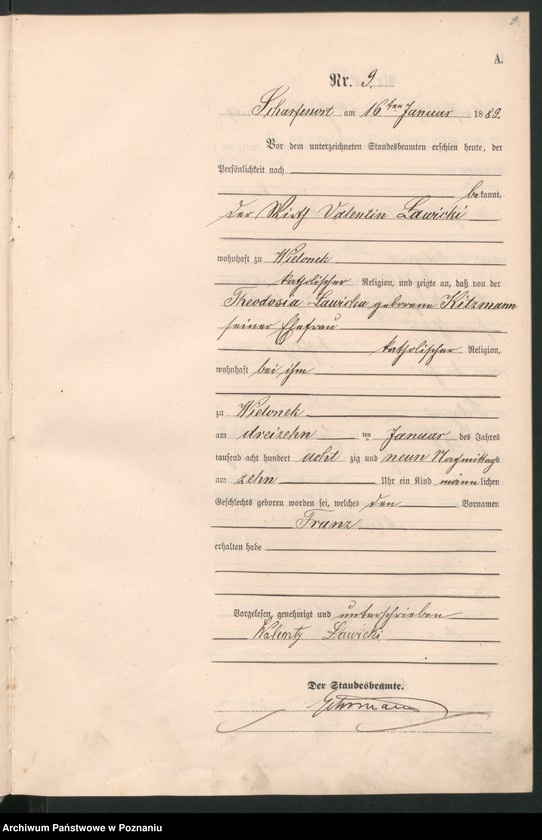 A.
Nr. 9.
Scharfenort am 16ten Januar 1889.
Vor dem unterzeichneten Standesbeamten erschien heute, der
Persönlichkeit nach
bekannt,
der Wirth Valentin Lawicki
wohnhaft zu Wielonek
katholischer Religion, und zeigte an, daß von der
Theodosia Lawicka geborene Kitzmann
seiner Ehefrau
katholischer Religion,
wohnhaft bei ihm
zu Wielonek
am dreizehn ten Januar des Jahres
tausend acht hundert acht zig und neun Nachmittags
um zehn Uhr ein Kind männlichen
Geschlechts geboren worden sei, welches den Vornamen
Franz
erhalten habe
Vorgelesen, genehmigt und unterschrieben
Lawicki
Der Standesbeamte.
Archiwum Państwowe w Poznaniu